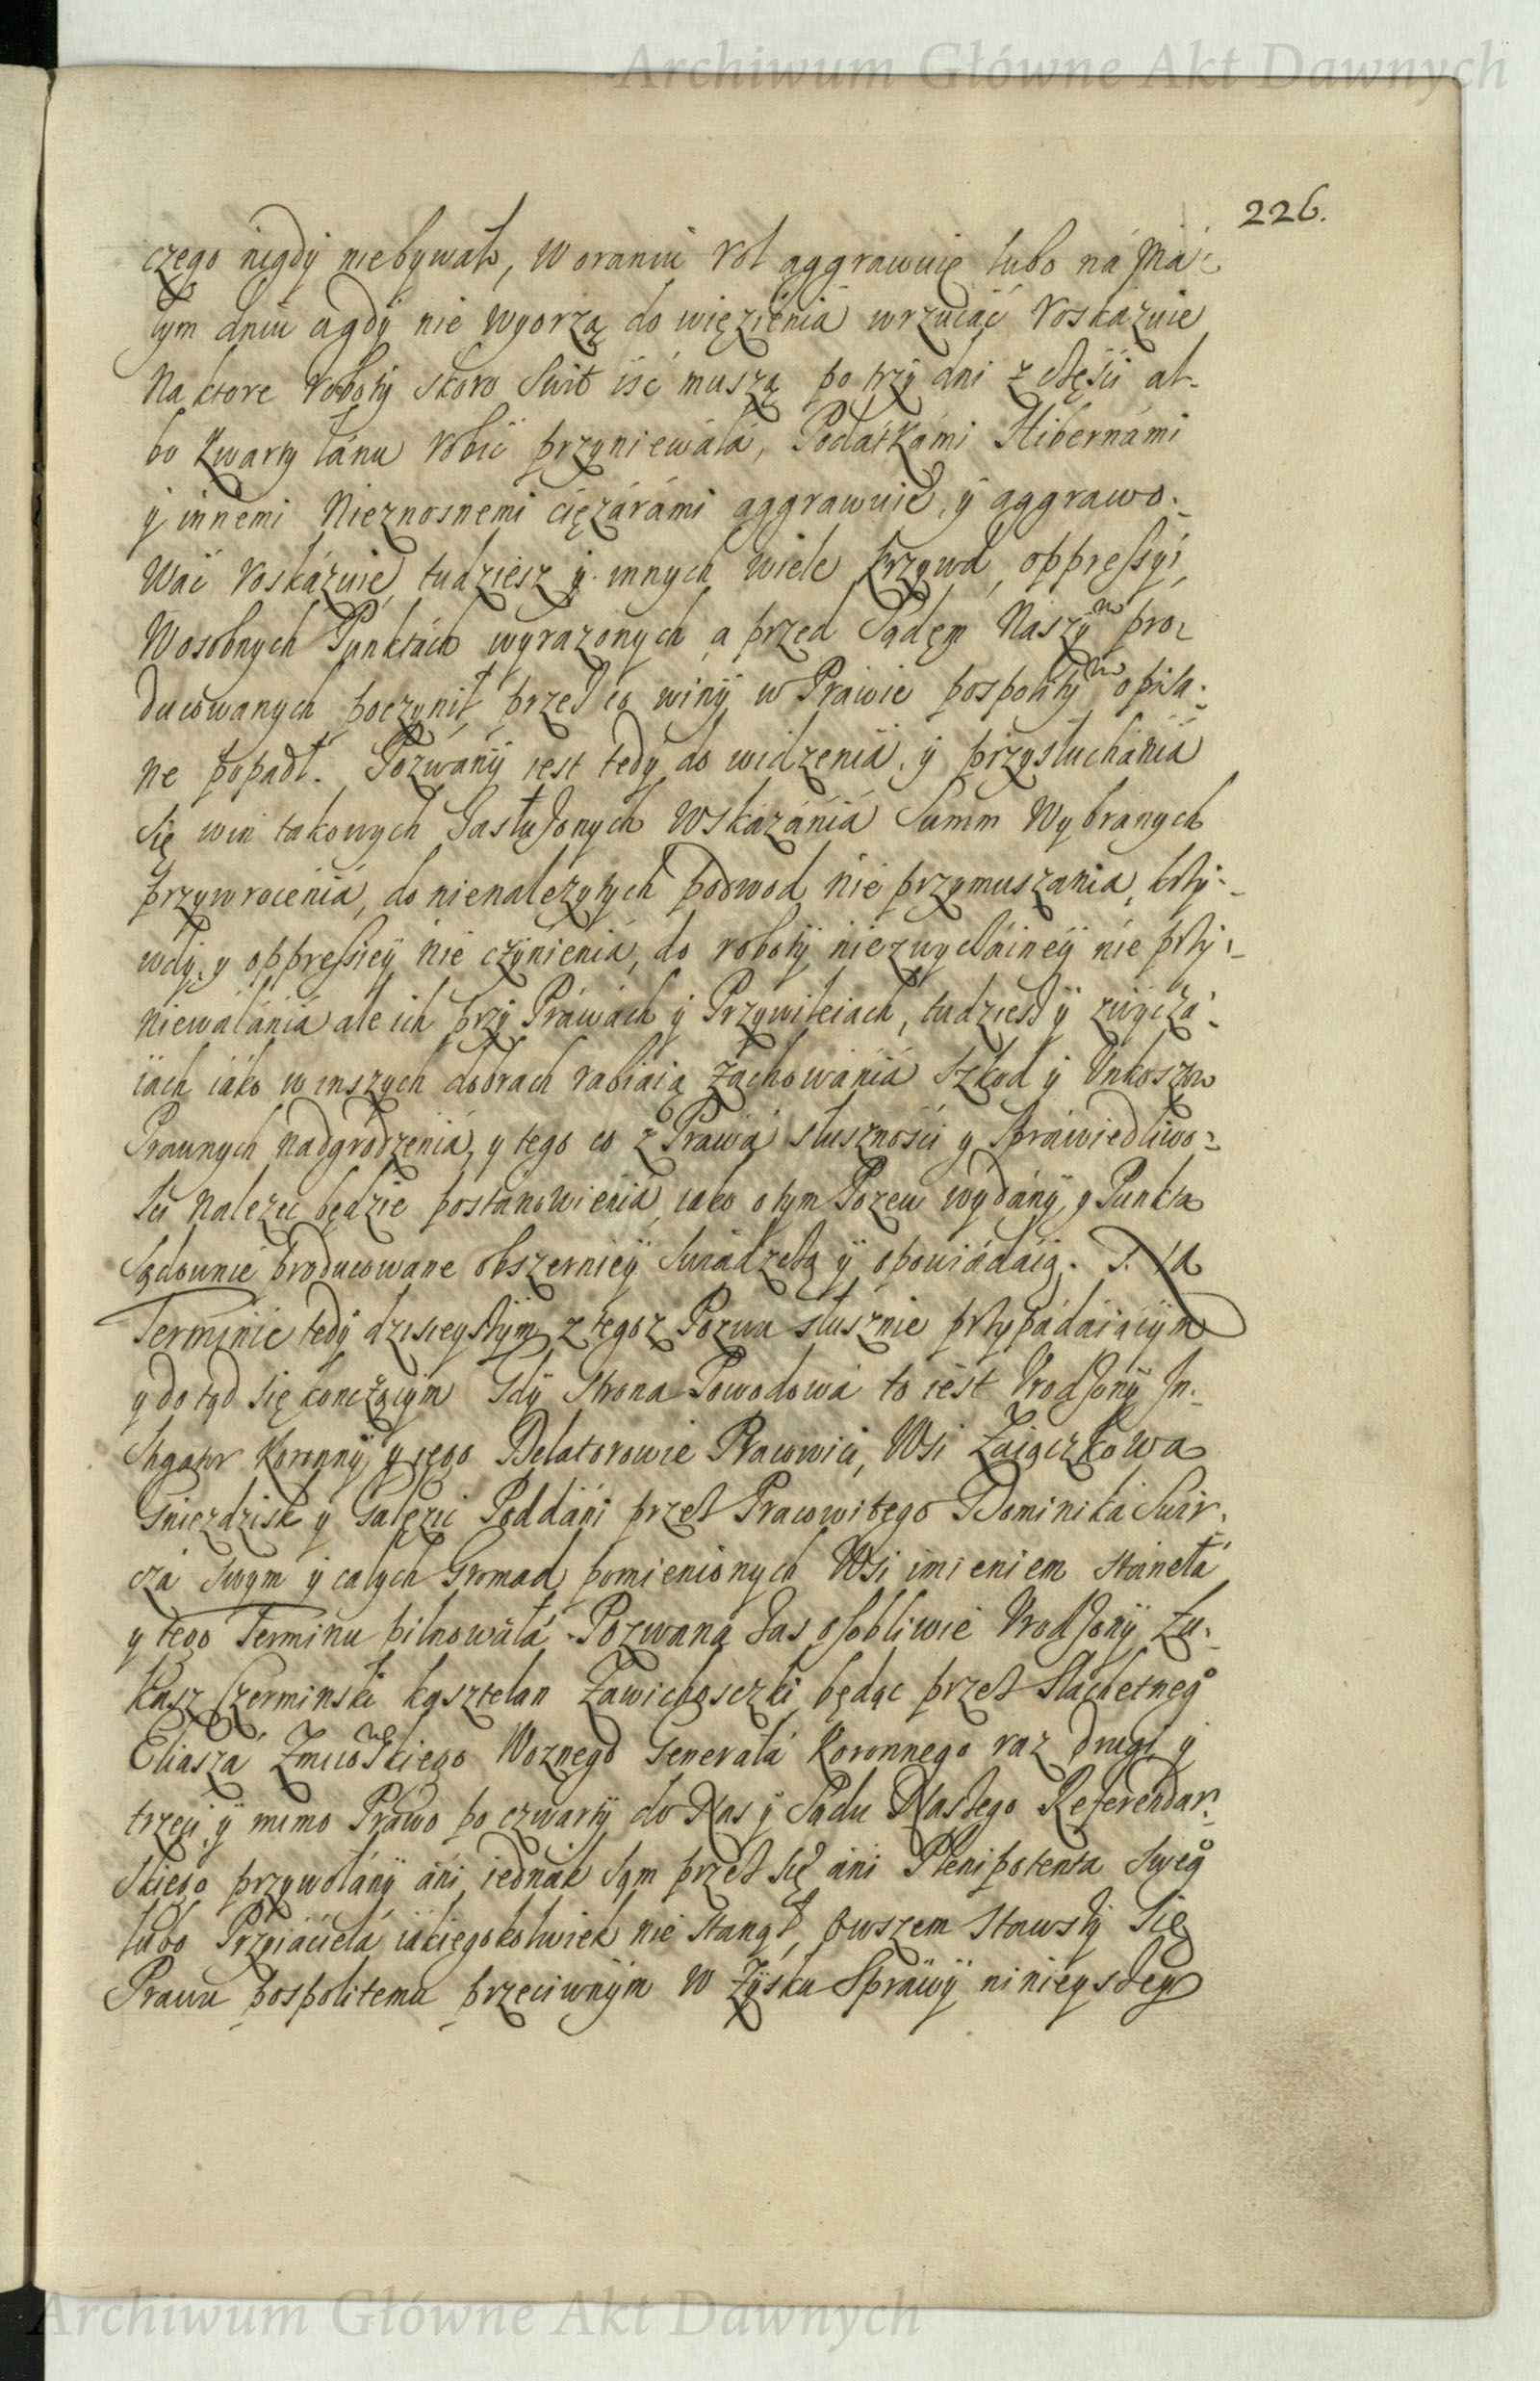 Archiwum Główne Akt Dawnych
226.
czego nigdy niebywało, W oraniu Rol aggrawuie lubo ná Má-
łym dniu a gdy nie wyorzą do więzięnia wrzucáć Roskázuie
Na ktore Roboty skoro Swit iść muszą po trzy dni z częśći al-
bo kwarty łánu Robić przyniewala, Podatkámi Hibernámi
y innemi Nieznosnemi ciężárámi aggrawuie, y aggrawo-
Wáć Roskázuie, tudziesz y innych wiele krzywd, oppressyi,
W osobnych Punktách wyrażonych a przed Sądęm Naszym pro-
ducowanych poczynił, przez co winy w Práwie pospolitym opisa-
ne popadł. Pozwány iest tedy do widzenia, y przysłuchánia
Się win takowych Zasłużonych Wskázánia Summ Wybránych
przywrocenia, do nienależytych podwod nie przymuszania, krzy-
wdy, y oppressiey nie czynienia, do roboty niezwyczáiney nie przy-
niewaláńia ale ich przy Práwách y Przywileiach, tudziesz y zwyczá-
iách iáko w inszych dobrach rabiaią záchowánia Szkod y Unkosztow
Prawnych nádgrodzenia, y tego co z Práwá słusznośći y Spráwiedliwo-
śći należeć będzie postánowienia, iáko o tym Pozew wydány, y Punkta
Sądownie producowane obszerniey Swiadczą y opowiádáią. Na
Terminie tedy dzisieyszym z tegoż Pozwu słusznie przypadáiącym
y do tąd się kończącym Gdy Strona Powodowa to iest Urodzony In-
stygator Koronny y iego Delatorowie Pracowici, Wsi Zaiączkowa
Gniezdzisk y Gałęzic Poddáni przez Pracowitego Dominiká Swir-
czá Swym y całych Gromad pomienionych Wsi imieniem stánełá
y tego Terminu pilnowałá. Pozwana Zas osobliwie Urodzony Łu-
kasz Czerminski kasztelan Zawichosczki będąc przez Slachetnego
Eliaszá Woznego Generałá Koronnego raz drugi y
trzeci, y mimo Prawo po czwarty do Nas y Sądu Naszego Referendar-
skiego przywołány áni iednák Sąm przez Się áni Plenipotenta Swego
lubo Przyiacielá iákiegokolwiek nie stanął, owszem stawszy Się
Prawu pospolitemu przeciwnym W Zysku Spráwy ninieyszey
Archiwum Główne Akt Dawnych